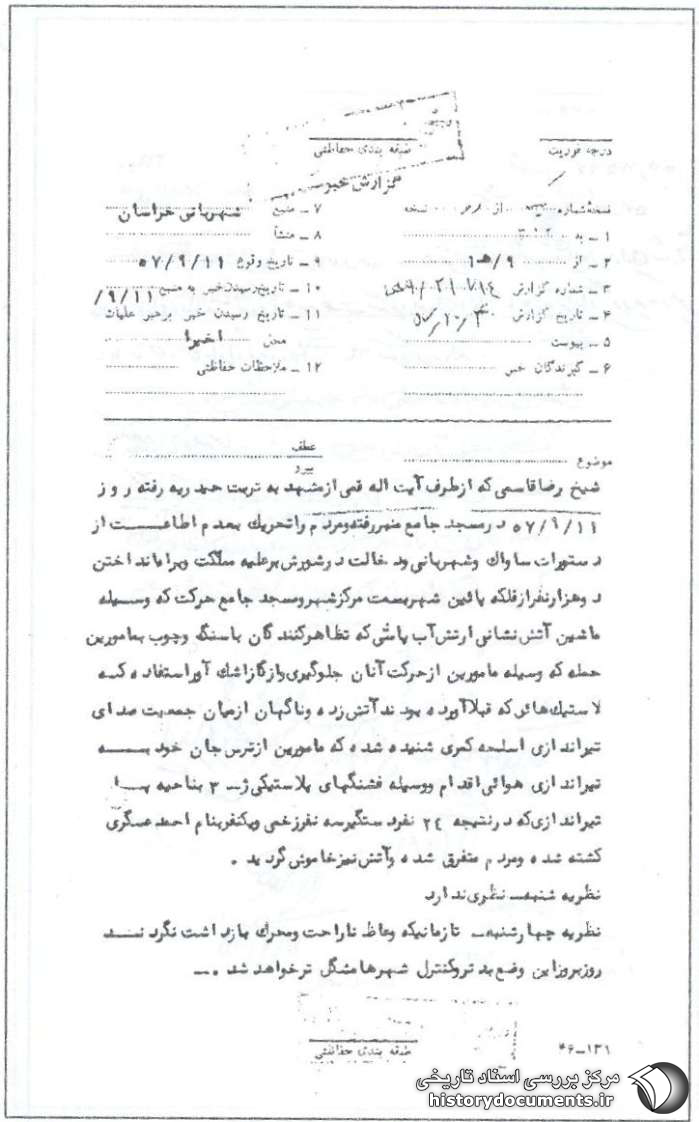 درجه فوریت
طبقه بندی حفاظتی
گزارش خبر
نسخه شماره از نسخه
۱ ـ به
۲ ـ از ۹/ه‍ ۱
۳ ـ شماره گزارش
۴ ـ تاریخ گزارش
۵ ـ پیوست
۶ ـ گیرندگان خبر
۷ ـ منبع شهربانی خراسان
۸ ـ منشأ
۹ ـ تاریخ وقوع ۵۷/۹/۱۱
۱۰ ـ تاریخ رسیدن خبر به منبع ۹/۱۱/
۱۱ ـ تاریخ رسیدن خبر برهبر عملیات
محل اخیرا
۱۲ ـ ملاحظات حفاظتی
موضوع
عطف
پیرو
شیخ رضا قاسمی که ازطرف آیت اله قمی ازمشهد به تربت حیدریه رفته روز
۵۷/۹/۱۱ درمسجد جامع منبررفته ومردم راتحریك بعدم اطاعت از
دستورات ساواك وشهربانی ودخالت درشورش برعلیه مملکت وبراه انداختن
دوهزارنفرازفلکه پائین شهربسمت مرکزشهرومسجد جامع حرکت که وسیله
ماشین آتش نشانی ارتش آب پاشی که تظاهرکنندگان باسنگ وچوب بمامورین
حمله که وسیله مامورین ازحرکت آنان جلوگیری وازگازاشك آوراستفاده که
لاستیك هائی که قبلاآورده بودند آتش زده وناگهان ازمیان جمعیت صدای
تیراندازی اسلحه کمری شنیده شده که مامورین ازترس جان خود به
تیراندازی هوائی اقدام ووسیله فشنگهای پلاستیکی ژ۳ بناحیه پا
تیراندازی که درنتیجه ۲٤ نفردستگیرسه نفرزخمی ویکنفربنام احمد عسگری
کشته شده ومردم متفرق شده وآتش نیزخاموش گردید .
نظریه شنبه ـ نظری ندارد
نظریه چهارشنبه ـ تازمانیکه وعاظ ناراحت ومحرك بازداشت نگردند
روزبروزاین وضع بدتروکنترل شهرهامشگل ترخواهد شد .ـ
طبقه بندی حفاظتی
۴۶-۱۳۱
مرکز بررسی اسناد تاریخی
historydocuments.ir